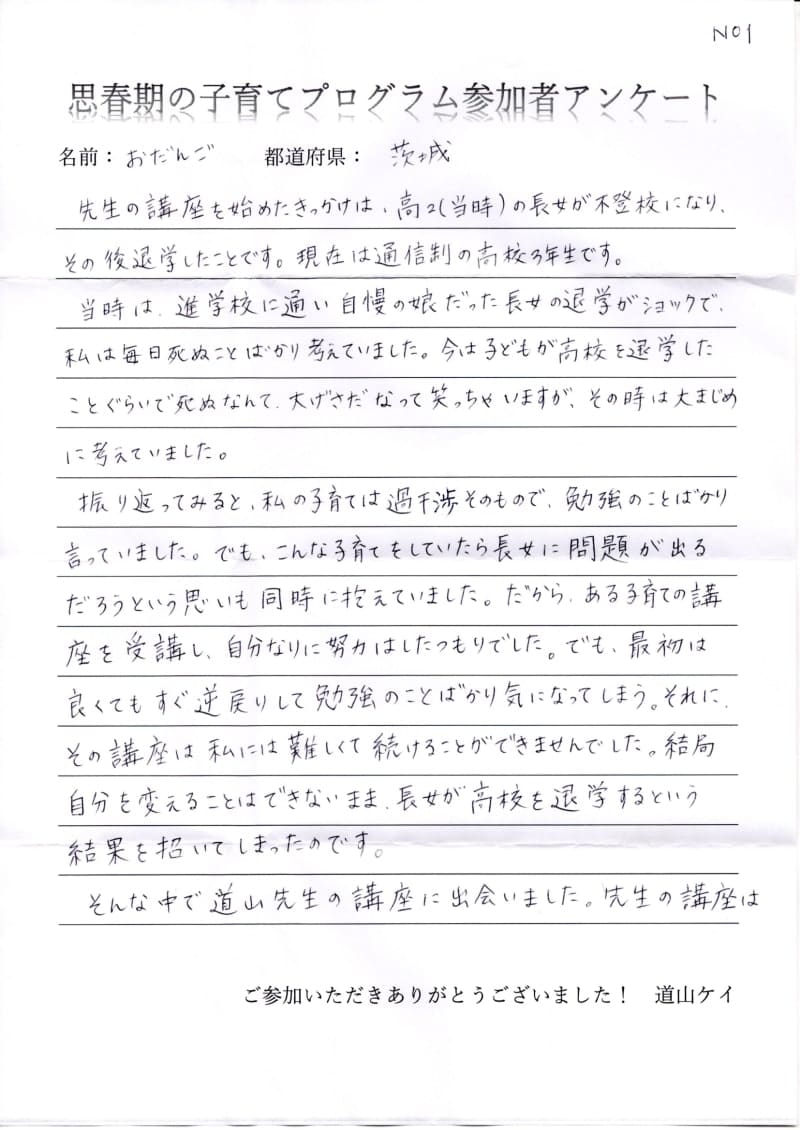 NO1
思春期の子育てプログラム参加者アンケート
名前：おだんご　都道府県：茨城
先生の講座を始めたきっかけは、高2(当時)の長女が不登校になり、
その後退学したことです。現在は通信制の高校3年生です。
当時は、進学校に通い自慢の娘だった長女の退学がショックで、
私は毎日死ぬことばかり考えていました。今は子どもが高校を退学した
ことぐらいで死ぬなんて、大げさだなって笑っちゃいますが、その時は大まじめ
に考えていました。
振り返ってみると、私の子育ては過干渉そのもので、勉強のことばかり
言っていました。でも、こんな子育てをしていたら長女に問題が出る
だろうという思いも同時に抱えていました。だから、ある子育ての講
座を受講し、自分なりに努力はしたつもりでした。でも、最初は
良くてもすぐ逆戻りして勉強のことばかり気になってしまう。それに、
その講座は私には難しくて続けることができませんでした。結局
自分を変えることはできないまま、長女が高校を退学するという
結果を招いてしまったのです。
そんな中で道山先生の講座に出会いました。先生の講座は
ご参加いただきありがとうございました！　道山ケイ